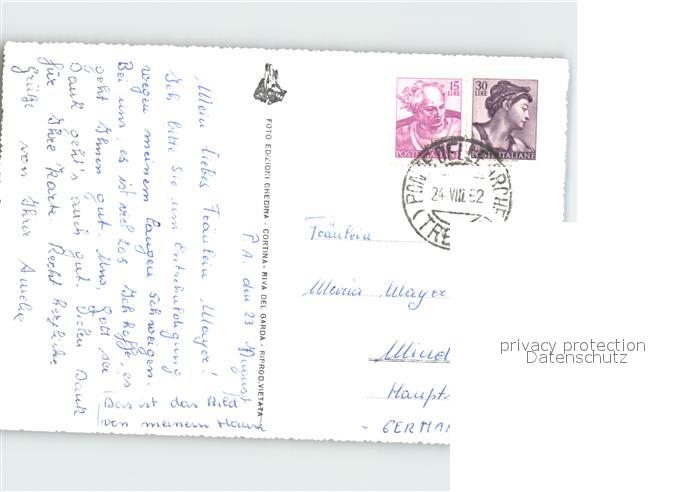 P. A. den 23 August
Mein liebes Fräulein Mayer!
Ich bitte Sie um Entschuldigung
wegen meinem langen Schweigen.
Bei uns, es ist viel los. Ich hoffe, es
geht Ihnen gut. Uns, Gott sei
Dank geht's auch gut. Vielen Dank
für Ihre Karte. Recht herzliche
Grüße von Ihrer Amelie
Das ist das Bild
von meinem Hause
FOTO EDIZIONI GHEDINA - CORTINA - RIVA DEL GARDA - RIPROD. VIETATA
15 LIRE
POSTE ITALIANE
30 LIRE
POSTE ITALIANE
24 VIII 62
(TRE
Fräulein
Maria Mayer
Mind
Haupts
- GERMA
privacy protection
Datenschutz